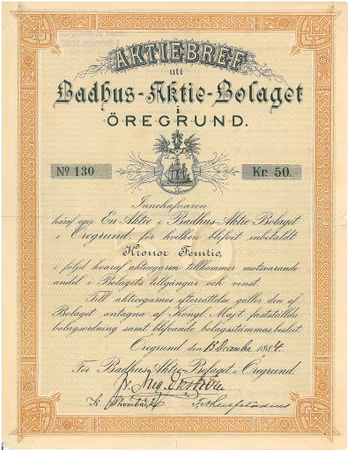 AKTIEBREF
uti
Badhus-Aktie-Bolaget
i
ÖREGRUND.
No 130
Kr. 50.
Innehafvaren
häraf eger En Aktie i Badhus-Aktie-Bolaget
i Öregrund, för hvilken blifvit inbetaldt
Kronor Femtio,
i följd hvaraf aktieegaren tillkommer motsvarande
andel i Bolagets tillgångar och vinst.
Till aktieegarnes efterrättelse gäller den af
Bolaget antagna af Kongl. Maj:t fastställda
bolagsordning samt blifvande bolagsstämmas beslut.
Öregrund den 13 December 1884.
För Badhus-Aktie-Bolaget i Öregrund.